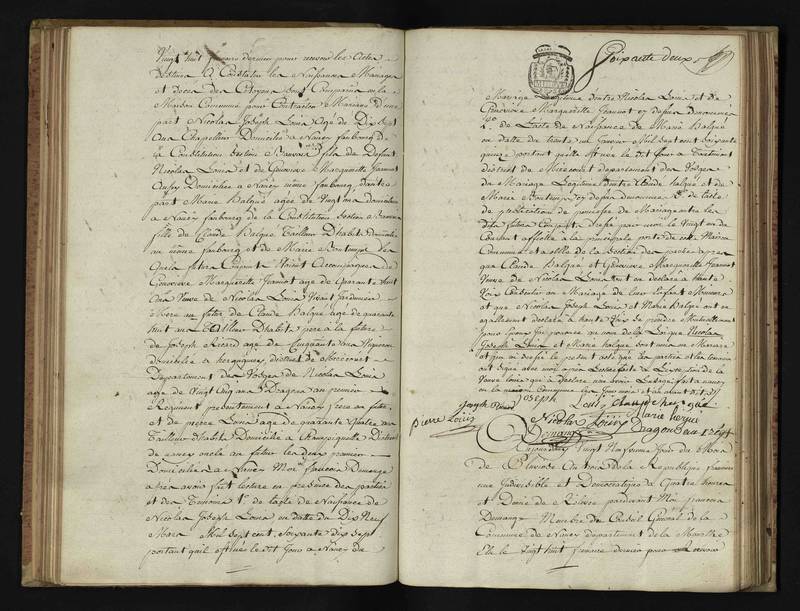 Vingt huit frimaire dernier pour recevoir les Actes
destinés à Constater les Naissances Mariages
et Décès des Citoyens sont Comparus en la
Maison Commune pour Contracter Mariage d'une
part Nicolas Joseph Louis agé de Dix Sept
ans Chapellier Domicilié à Nancy faubourg de
la Constitution Section fils de Defunt
Nicolas Louis et de Genevieve Marguerite Jeannot
aussy Domiciliée à Nancy même faubourg d'autre
part Marie Balque agée de Vingt ans domiciliée
à Nancy faubourg de la Constitution Section
fille de Claude Balque Tailleur D'habits domicilié
au même faubourg et de Marie Bontemps
futurs Conjoints étaient Accompagnés de
Genevieve Marguerite Jeannot agée de Quarante huit
ans Veuve de Nicolas Louis Vivant Jardinier
Mere au futur de Claude Balque agé de quarante
huit ans Tailleur D'habits pere à la future
de Joseph Ricard agé de Cinquante ans Vigneron
domicilié à district de Mirecourt
Departement des Vosges de Nicolas Louis
agé de Vingt Cinq ans Dragon au premier
Regiment presentement à Nancy frere au futur,
et de pierre Louis agé de quarante quatre ans
Tailleur d'habits Domicilié à Champigneulle District
de Nancy oncle au futur les deux premiers
Domiciliés à Nancy Moi francois Demange
après avoir fait lecture en presence des parties
et des Temoins 1° de l'acte de Naissance de
Nicolas Joseph Louis en datte du Dix Neuf
Mars Mil Sept cent Soixante dix Sept
portant qu'il est né le dit Jour à Nancy du
Soixante deux
Mariage Legitime d'entre Nicolas Louis et de
Genevieve Marguerite Jeannot cy dessus denommés
2° de l'acte de Naissance de Marie Balque
en datte du trente un Janvier Mil Sept cent Soixante
quinze portant qu'elle est née le dit Jour à
district de Mirecourt departement des Vosges
du Mariage Legitime d'entre Claude Balque et de
Marie Bontemps cy dessus denommés 3° de l'acte
de publication de promesse de Mariage entre les
dits futurs Conjoints Dressé par moi le Vingt un du
Courant affiché à la principale porte de cette Maison
Commune et à celle de la Section des après
que Claude Balque et Genevieve Marguerite Jeannot
Veuve de Nicolas Louis ont declaré à haute
Voix Consentir au Mariage de leurs Enfans Mineurs
et que Nicolas Joseph Louis et Marie Balque ont
egallement declaré à haute Voix se prendre Mutuellement
pour Epoux J'ai prononcé au nom de la Loi que Nicolas
Joseph Louis et Marie Balque sont unis en Mariage
et j'ai redigé le present acte que les parties et les temoins
ont signé avec moi après Lecture faite à l'exception de la
Veuve Louis qui à declaré ne savoir Ecrire fait à Nancy
en la maison Commune les Jour mois et an avant dit
Joseph Ricard Joseph Louis Claude
pierre Louis Nicolas Louis Marie
Demange Dragon au 1er Rgt
Aujourdhuy Vingt Neuvieme Jour du Mois
de Pluviose An trois de la Republique francaise
une Indivisible et Democratique à Quatre heures
et Demie de Relevée pardevant Moi francois
Demange Membre du Conseil General de la
Commune de Nancy departement de la Meurthe
Elu le Vingt huit frimaire dernier pour Recevoir